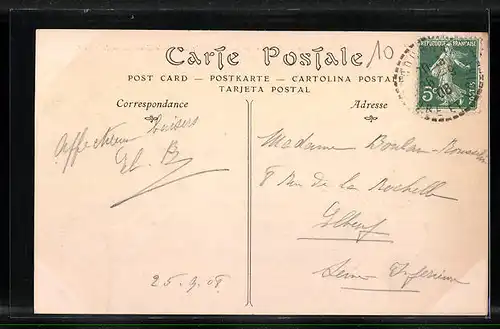 Carte Postale
10
POST CARD — POSTKARTE — CARTOLINA POSTALE
TARJETA POSTAL
REPUBLIQUE FRANÇAISE
5c
POSTES
08
Correspondance
Adresse
Baisers
Madame Boulan-
8 Rue de la Rochelle
Elbeuf
Seine Inférieure
25.9.08